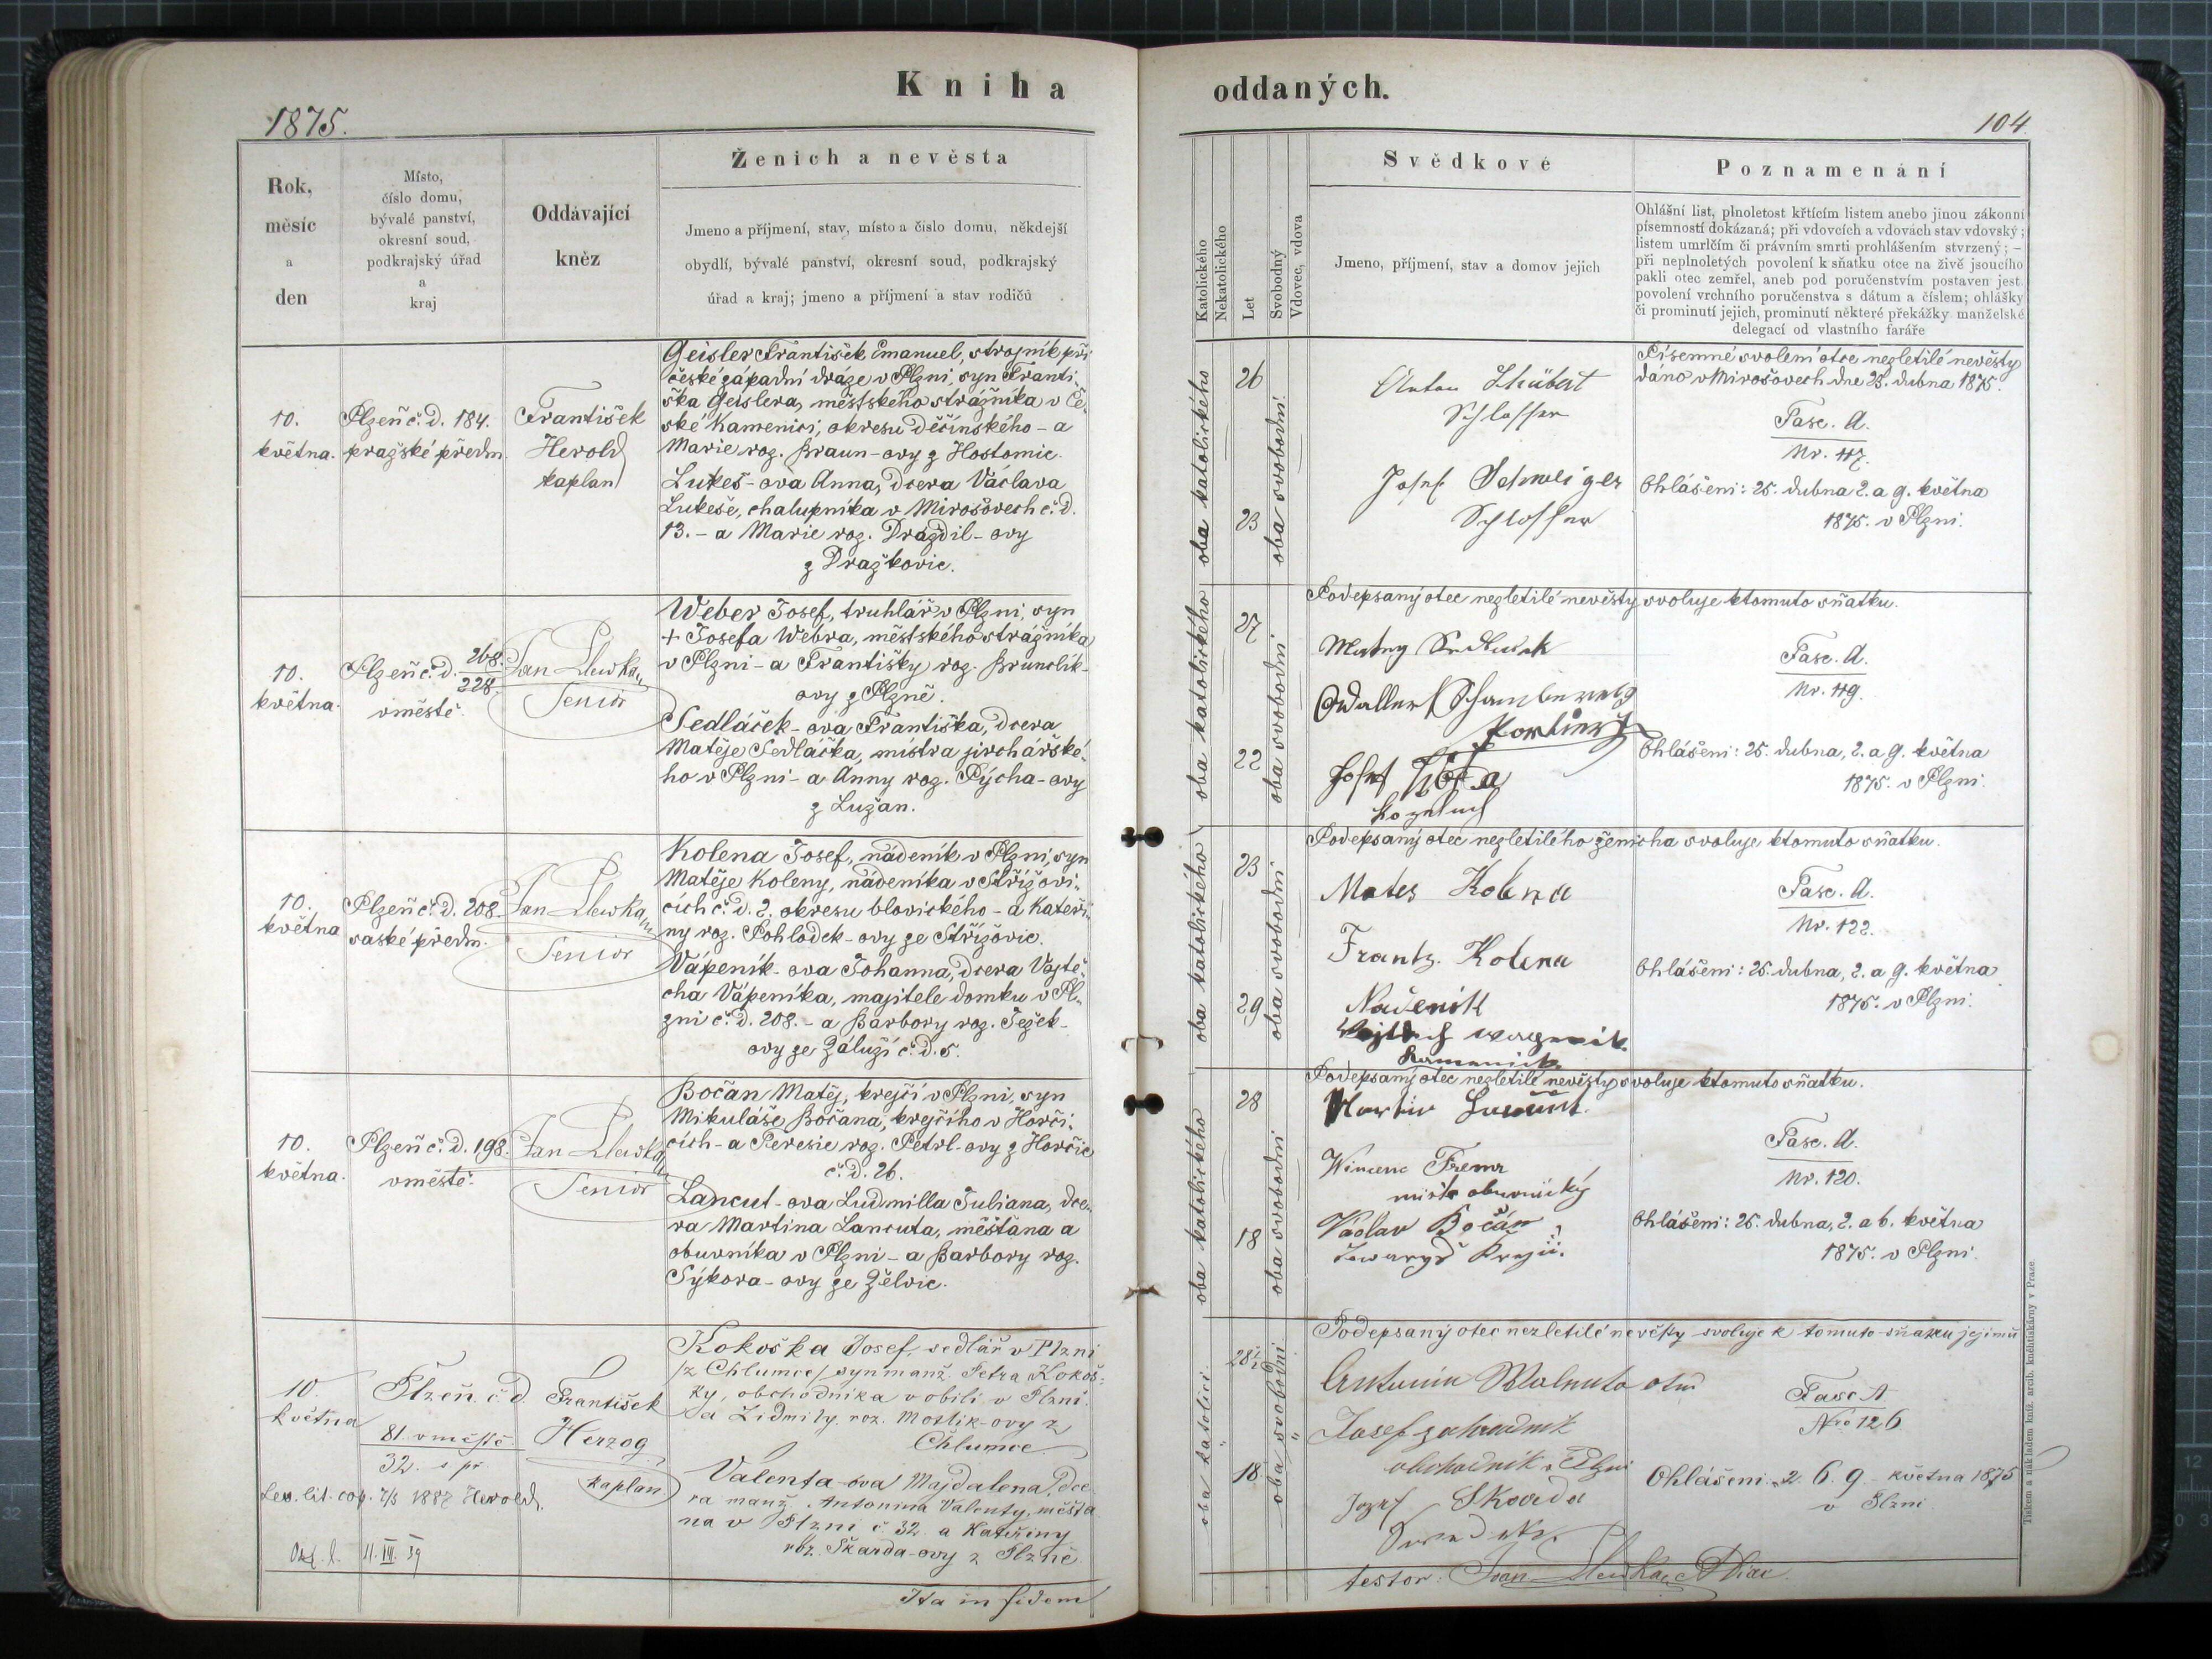 Kniha
oddaných.
1875.
104
Rok,
měsíc
a
den
Místo,
číslo domu,
bývalé panství,
okresní soud,
podkrajský úřad
a
kraj
Oddávající
kněz
Ženich a nevěsta
Jmeno a příjmení, stav, místo a číslo domu, někdejší
obydlí, bývalé panství, okresní soud, podkrajský
úřad a kraj; jmeno a příjmení a stav rodičů
Katolického
Nekatolického
Let
Svobodný
Vdovec, vdova
Svědkové
Jmeno, příjmení, stav a domov jejich
Poznamenání
Ohlášní list, plnoletost křtícím listem anebo jinou zákonní
písemností dokázaná; při vdovcích a vdovách stav vdovský;
listem umrlčím či právním smrti prohlášením stvrzený; –
při neplnoletých povolení k sňatku otce na živě jsoucího
pakli otec zemřel, aneb pod poručenstvím postaven jest
povolení vrchního poručenstva s dátum a číslem; ohlášky
či prominutí jejich, prominutí některé překážky manželské
delegací od vlastního faráře
10.
května.
Plzeň č. d. 184.
pražské předm.
František
Herold
kaplan
Geisler František Emanuel, strojník při
české západní dráze v Plzni, syn Franti-
ška Geislera, městského strážníka v Če-
ské Kamenici, okresu děčínského - a
Marie roz. Braun-ovy z Hostomic.
Lukeš-ova Anna, dcera Václava
Lukeše, chalupníka v Mirošovech č. d.
13. - a Marie roz. Drazdil-ovy
z Dražkovic.
oba katolického
26
23
oba svobodni
Anton
Schlosser
Josef Schweiger
Schlosser
Písemné svolení otce nezletilé nevěsty
dáno v Mirošovech dne 25. dubna 1875.
Fasc. A.
Nr. 117.
Ohlášeni: 25. dubna 2. a 9. května
1875. v Plzni.
10.
května.
Plzeň č. d. 268.
228.
v městě.
Jan
Senior
Weber Josef, truhlář v Plzni, syn
+ Josefa Webra, městského strážníka
v Plzni - a Františky roz. Brunclík-
ovy z Plzně.
Sedláček-ova Františka, dcera
Matěje Sedláčka, mistra jirchářské-
ho v Plzni - a Anny roz. Pýcha-ovy
z Lužan.
oba katolického
27
22
oba svobodni
Podepsaný otec nezletilé nevěsty svoluje k tomuto sňatku.
Josef
Fasc. A.
Nr. 119.
Ohlášeni: 25. dubna, 2. a 9. května
1875. v Plzni.
10.
května
Plzeň č. d. 208.
saské předm.
Jan
Senior
Kolena Josef, nádeník v Plzni, syn
Matěje Koleny, nádeníka v Střížovi-
cích č. d. 2. okresu blovického - a Kateři-
ny roz. Pohlodek-ovy ze Střížovic.
Vápeník-ova Johanna, dcera Vojtě-
cha Vápeníka, majitele domku v Pl-
zni č. d. 208. - a Barbory roz. Ježek-
ovy ze Záluží č. d. 5.
oba katolického
23
29
oba svobodni
Podepsaný otec nezletilého ženicha svoluje k tomuto sňatku.
Mates Kolena
Frantz. Kolena
Nadeník
Fasc. A.
Nr. 122.
Ohlášeni: 25. dubna, 2. a 9. května
1875. v Plzni.
10.
května.
Plzeň č. d. 198.
v městě.
Jan
Senior
Bočan Matěj, krejčí v Plzni, syn
Mikuláše Bočana, krejčího v Horči-
cích - a Teresie roz. Petrl-ovy z Horčic
č. d. 26.
Lancut-ova Ludmilla Juliana, dce-
ra Martina Lancuta, měšťana a
obuvníka v Plzni - a Barbory roz.
Sýkora-ovy ze Želvic.
oba katolického
28
18
oba svobodni
Podepsaný otec nezletilé nevěsty svoluje k tomuto sňatku.
Martin
mistr obuvnický
Václav Bočán
Fasc. A.
Nr. 120.
Ohlášeni: 25. dubna, 2. a 6. května
1875. v Plzni.
10.
května
Plzeň č. d.
81. v městě
32. s. př.
František
Herzog
kaplan
Kokoška Josef, sedlář v Plzni
/z Chlumce/ syn manž. Petra Kokoš-
ky, obchodníka v obilí v Plzni
a Lidmily roz. Mostik-ovy z
Chlumce
Valenta-ova Majdalena, dce-
ra manž. Antonína Valenty, měšťa-
na v Plzni č. 32. a Kateřiny
roz. Škarda-ovy z Plzně
oba katolíci
18
oba svobodní
Podepsaný otec nezletilé nevěsty svoluje k tomuto sňatku jejímu
otec
Josef zahradník
obchodník v Plzni
Josef Skvada
Fasc A
Nro 126
Ohlášeni 2. 6. 9. května 1875
v Plzni
1887 Herold.
11. III. 39
Ita in fidem
testor:
Tiskem a nákladem kníž. arcib. knihtiskárny v Praze.